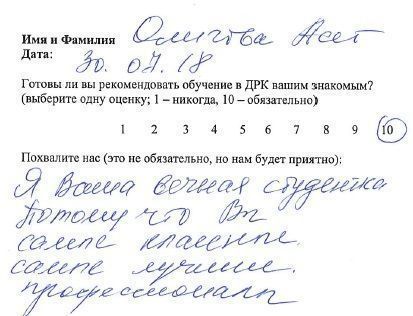 Имя и Фамилия Олигова Асет
Дата: 30.07.18
Готовы ли вы рекомендовать обучение в ДРК вашим знакомым?
(выберите одну оценку; 1 – никогда, 10 – обязательно)
1 2 3 4 5 6 7 8 9 10
Похвалите нас (это не обязательно, но нам будет приятно):
Я Ваша вечная студентка
Потому что Вы
самые классные.
самые лучшие.
профессионалы